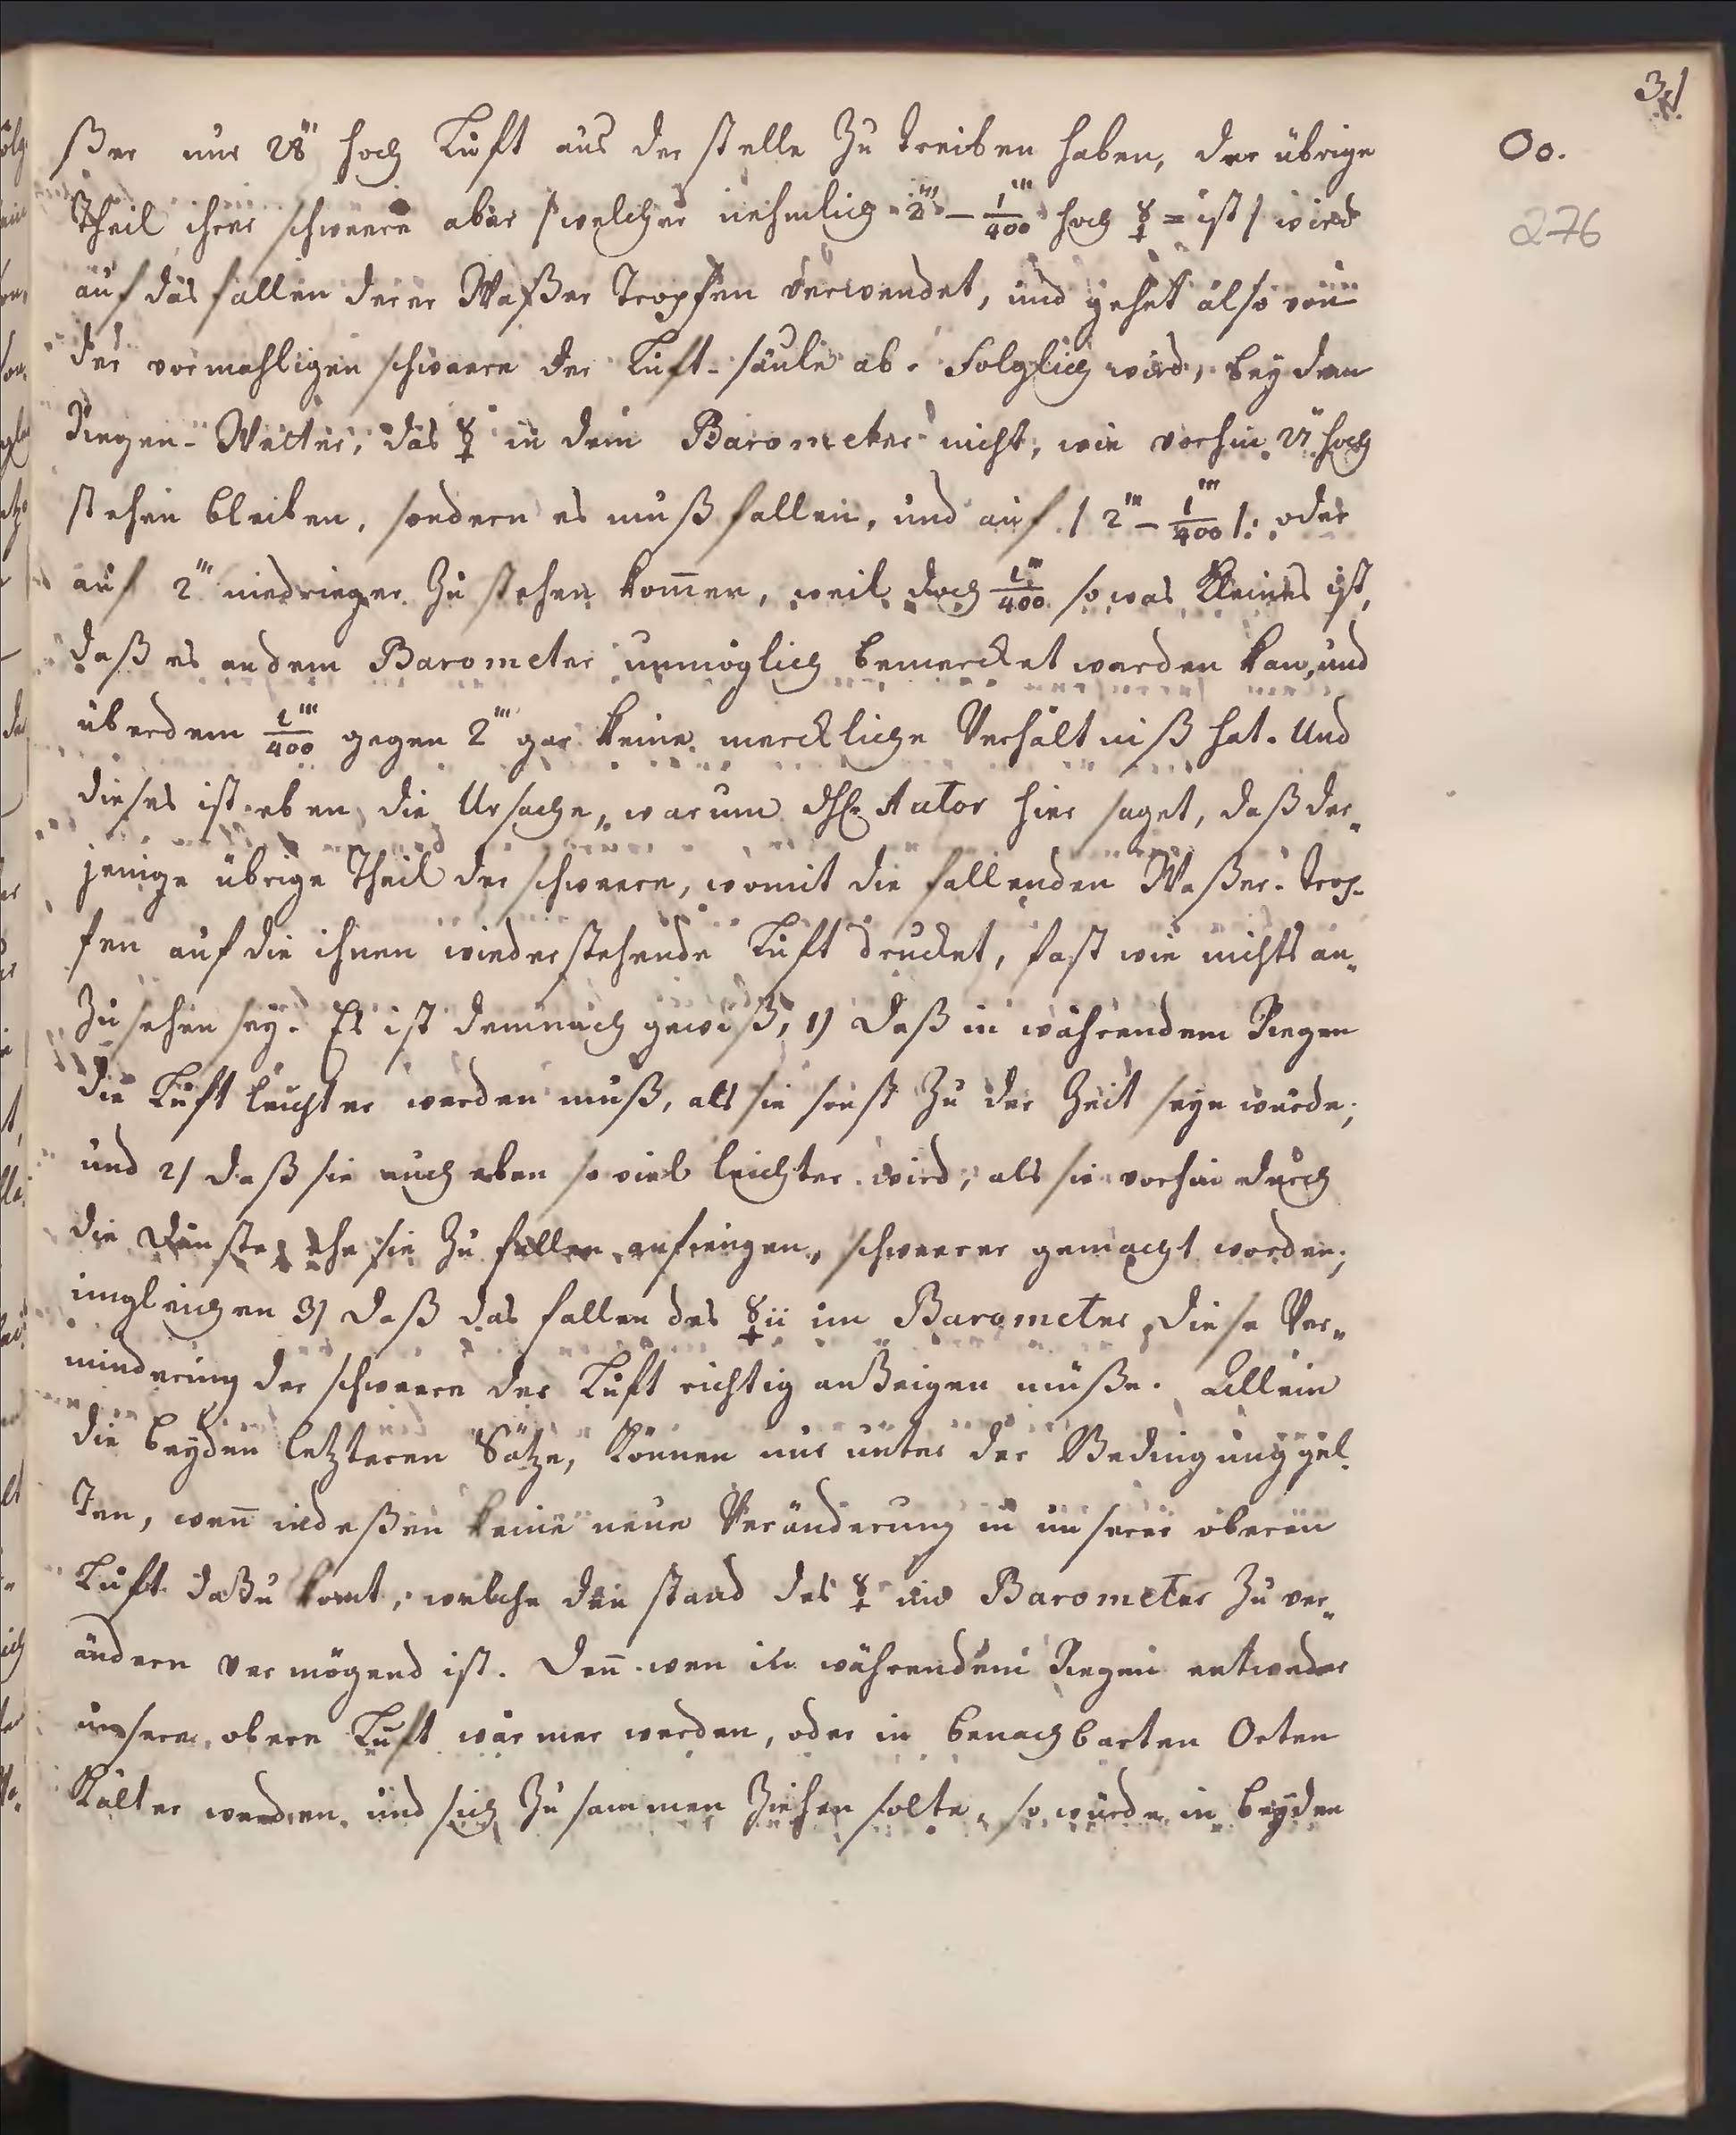 31
Oo.
276
ßer nur 28''' hoch Luft aus der stelle Zu treiben haben, der übrige
Theil ihrer schweere aber /welcher nehmlich 2''' – 1/400''' hoch ☿ = ist/ wird
auf das fallen derer Waßer Tropfen verwendet, und gehet also von
der vormahligen schweere der Luft-säule ab. Folglich wird, bey dem
Regen-Wetter, das ☿ in dem Barometer nicht, wie vorhin 27'' hoch
stehen bleiben, sondern es muß fallen, und auf / 2''' – 1/400''' /: oder
auf 2''' niedrieger Zu stehen kom̄en, weil doch 1/400''' so was Kleines ist,
daß es an dem Barometer unmöglich bemercket werden kan, und
überdem 1/400''' gegen 2''' gar keine merckliche Verhältniß hat. Und
dieses ist eben die Ursache, warum Autor hier saget, daß der„
jenige übrige Theil der schweere, womit die fallenden Waßer-Trop-
fen auf die ihnen wiederstehende Luft drucket, fast wie nichts an„
Zusehen sey. Es ist demnach gewiß, 1) daß in währendem Regen
die Luft leichter werden muß, als sie sonst Zu der Zeit seyn würde;
und 2) daß sie auch eben so viel leichter wird, als sie vorhin durch
die Dünste, ehe sie Zu fallen anfiengen, schweerer gemacht worden;
imgleichen 3) daß das fallen des ☿ii im Barometer, diese Ver„
minderung der schweere der Luft richtig anZeigen müße. Allein
die beyden letzteren Sätze, können nur unter der Bedingung gel-
ten, weñ indeßen keine neue Veränderung in unserer oberen
Luft daZu komt, welche den stand des ☿ im Barometer Zu ver„
ändern vermögend ist. Deñ wen in währendem Regen entweder
unsere obere Luft wärmer werden, oder in benachbarten Orten
Kälter werden und sich Zusammen Ziehen solte, so würde in beyden